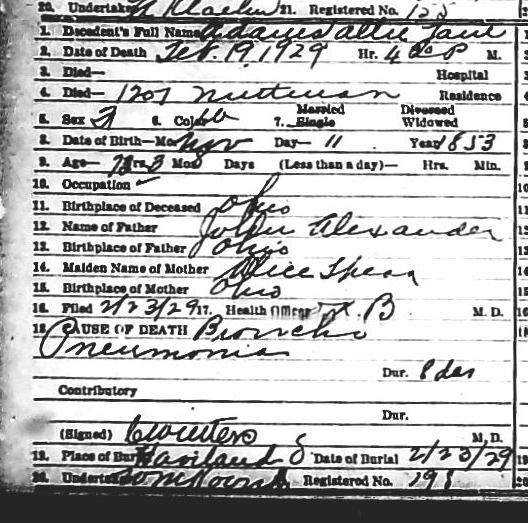 20. Undertaker 21. Registered No. 125
1. Decedent's Full Name Adams Allie Jane
2. Date of Death Feb. 19, 1929 Hr. 4 P M.
3. Died— Hospital
4. Died— 1207 Residence
5. Sex F 6. Color W 7. Married Single Divorced Widowed
8. Date of Birth—Mo. Nov Day— 11 Year 1853
9. Age— Yrs. 3 Mos Days (Less than a day)— Hrs. Min.
10. Occupation
11. Birthplace of Deceased Ohio
12. Name of Father John Alexander
13. Birthplace of Father Ohio
14. Maiden Name of Mother Alice Spear
15. Birthplace of Mother Ohio
16. Filed 2/23/29 17. Health Officer B M. D.
18. CAUSE OF DEATH Broncho
Pneumonia
Dur. 8 das
Contributory
Dur.
(Signed) M. D.
19. Place of Burial Haviland O Date of Burial 2/23/29
20. Undertaker Registered No. 198